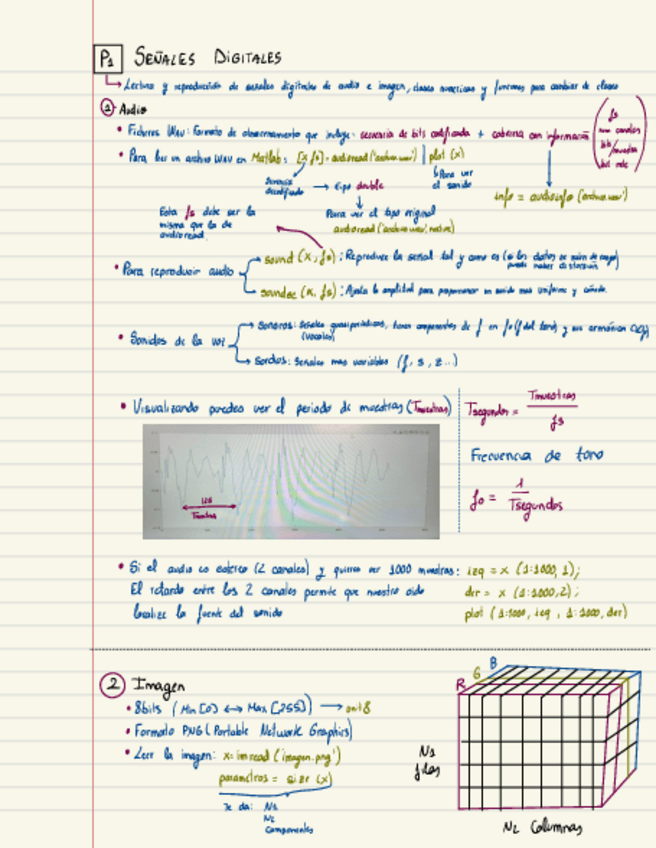 P1 SEÑALES DIGITALES
Lectura y reproducción de señales digitales de audio e imagen, clases numéricas y funciones para cambiar de clases
1 Audio
• Ficheros WAV: formato de almacenamiento que incluye: secuencia de bits codificada + cabecera con información
fs
num canales
bits/muestra
bit rate
• Para leer un archivo WAV en Matlab: [x fs] = audioread('archivo.wav') | plot (x)
Para ver
el sonido
→ tipo double
info = audioinfo ('archivo.wav')
Para ver el tipo original
audioread('archivo.wav', native)
Esta fs debe ser la
misma que la de
audioread.
• Para reproducir audio
sound (x, fs): Reproduce la señal tal y como es (si los datos se salen de rango
puede haber distorsión)
soundsc (x, fs): Ajusta la amplitud para proporcionar un sonido más uniforme y
• Sonidos de la voz
Sonoros: Señales quasiperiódicas, tienen componentes de f en fo (f del tono) y sus armónicos
(vocales)
Sordos: Señales mas variables (f, s, z...)
• Visualizando puedes ver el periodo de muestras (Tmuestras)
Tsegundos = Tmuestras
fs
125
Tmuestras
Frecuencia de tono
fo = 1
Tsegundos
• Si el audio es estéreo (2 canales) y quieres ver 1000 muestras: izq = x (1:1000, 1);
El retardo entre los 2 canales permite que nuestro oído der = x (1:1000,2);
localice la fuente del sonido plot (1:1000, izq, 1:1000, der)
2 Imagen
• 8bits (Min[0] ↔ Max [255]) → uint8
• Formato PNG (Portable Network Graphics)
• Leer la imagen: x=imread ('imagen.png')
parametros = size (x)
te da: N1
N2
Componentes
R G B
N1
filas
N2 Columnas